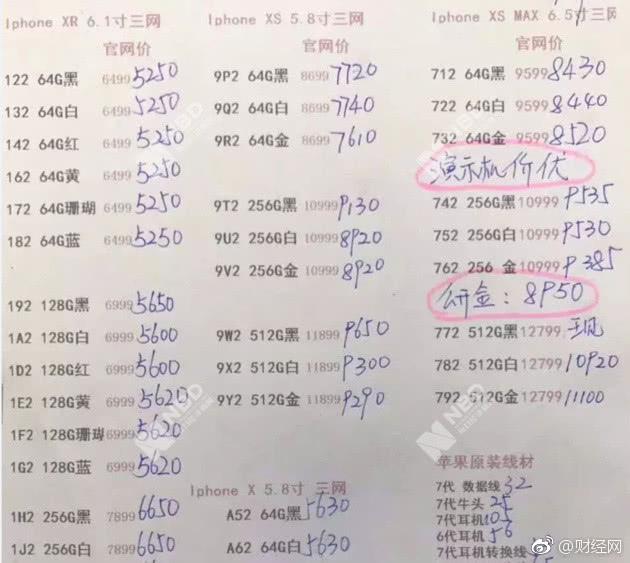 Iphone XR 6.1寸三网
官网价
122 64G黑 6499 5250
132 64G白 6499 5250
142 64G红 6499 5250
162 64G黄 6499 5250
172 64G珊瑚 6499 5250
182 64G蓝 6499 5250
192 128G黑 6999 5650
1A2 128G白 6999 5600
1D2 128G红 6999 5600
1E2 128G黄 6999 5620
1F2 128G珊瑚 6999 5620
1G2 128G蓝 6999 5620
1H2 256G黑 7899 6650
1J2 256G白 7899 6650
Iphone XS 5.8寸三网
官网价
9P2 64G黑 8699 7720
9Q2 64G白 8699 7740
9R2 64G金 8699 7610
9T2 256G黑 10999 9130
9U2 256G白 10999 8920
9V2 256G金 10999 8920
9W2 512G黑 11899 9650
9X2 512G白 11899 9300
9Y2 512G金 11899 9290
Iphone X 5.8寸 三网
A52 64G黑 5630
A62 64G白 5630
Iphone XS MAX 6.5寸三网
官网价
712 64G黑 9599 8430
722 64G白 9599 8440
732 64G金 9599 8520
演示机价优
742 256G黑 10999 9535
752 256G白 10999 9530
762 256 金 10999 9385
金：8950
772 512G黑 12799
782 512G白 12799 10920
792 512G金 12799 11100
苹果原装线材
7代 数据线 32
7代牛头 25
7代耳机 105
6代耳机 56
7代耳机转换线
NBD
NBD
@财经网